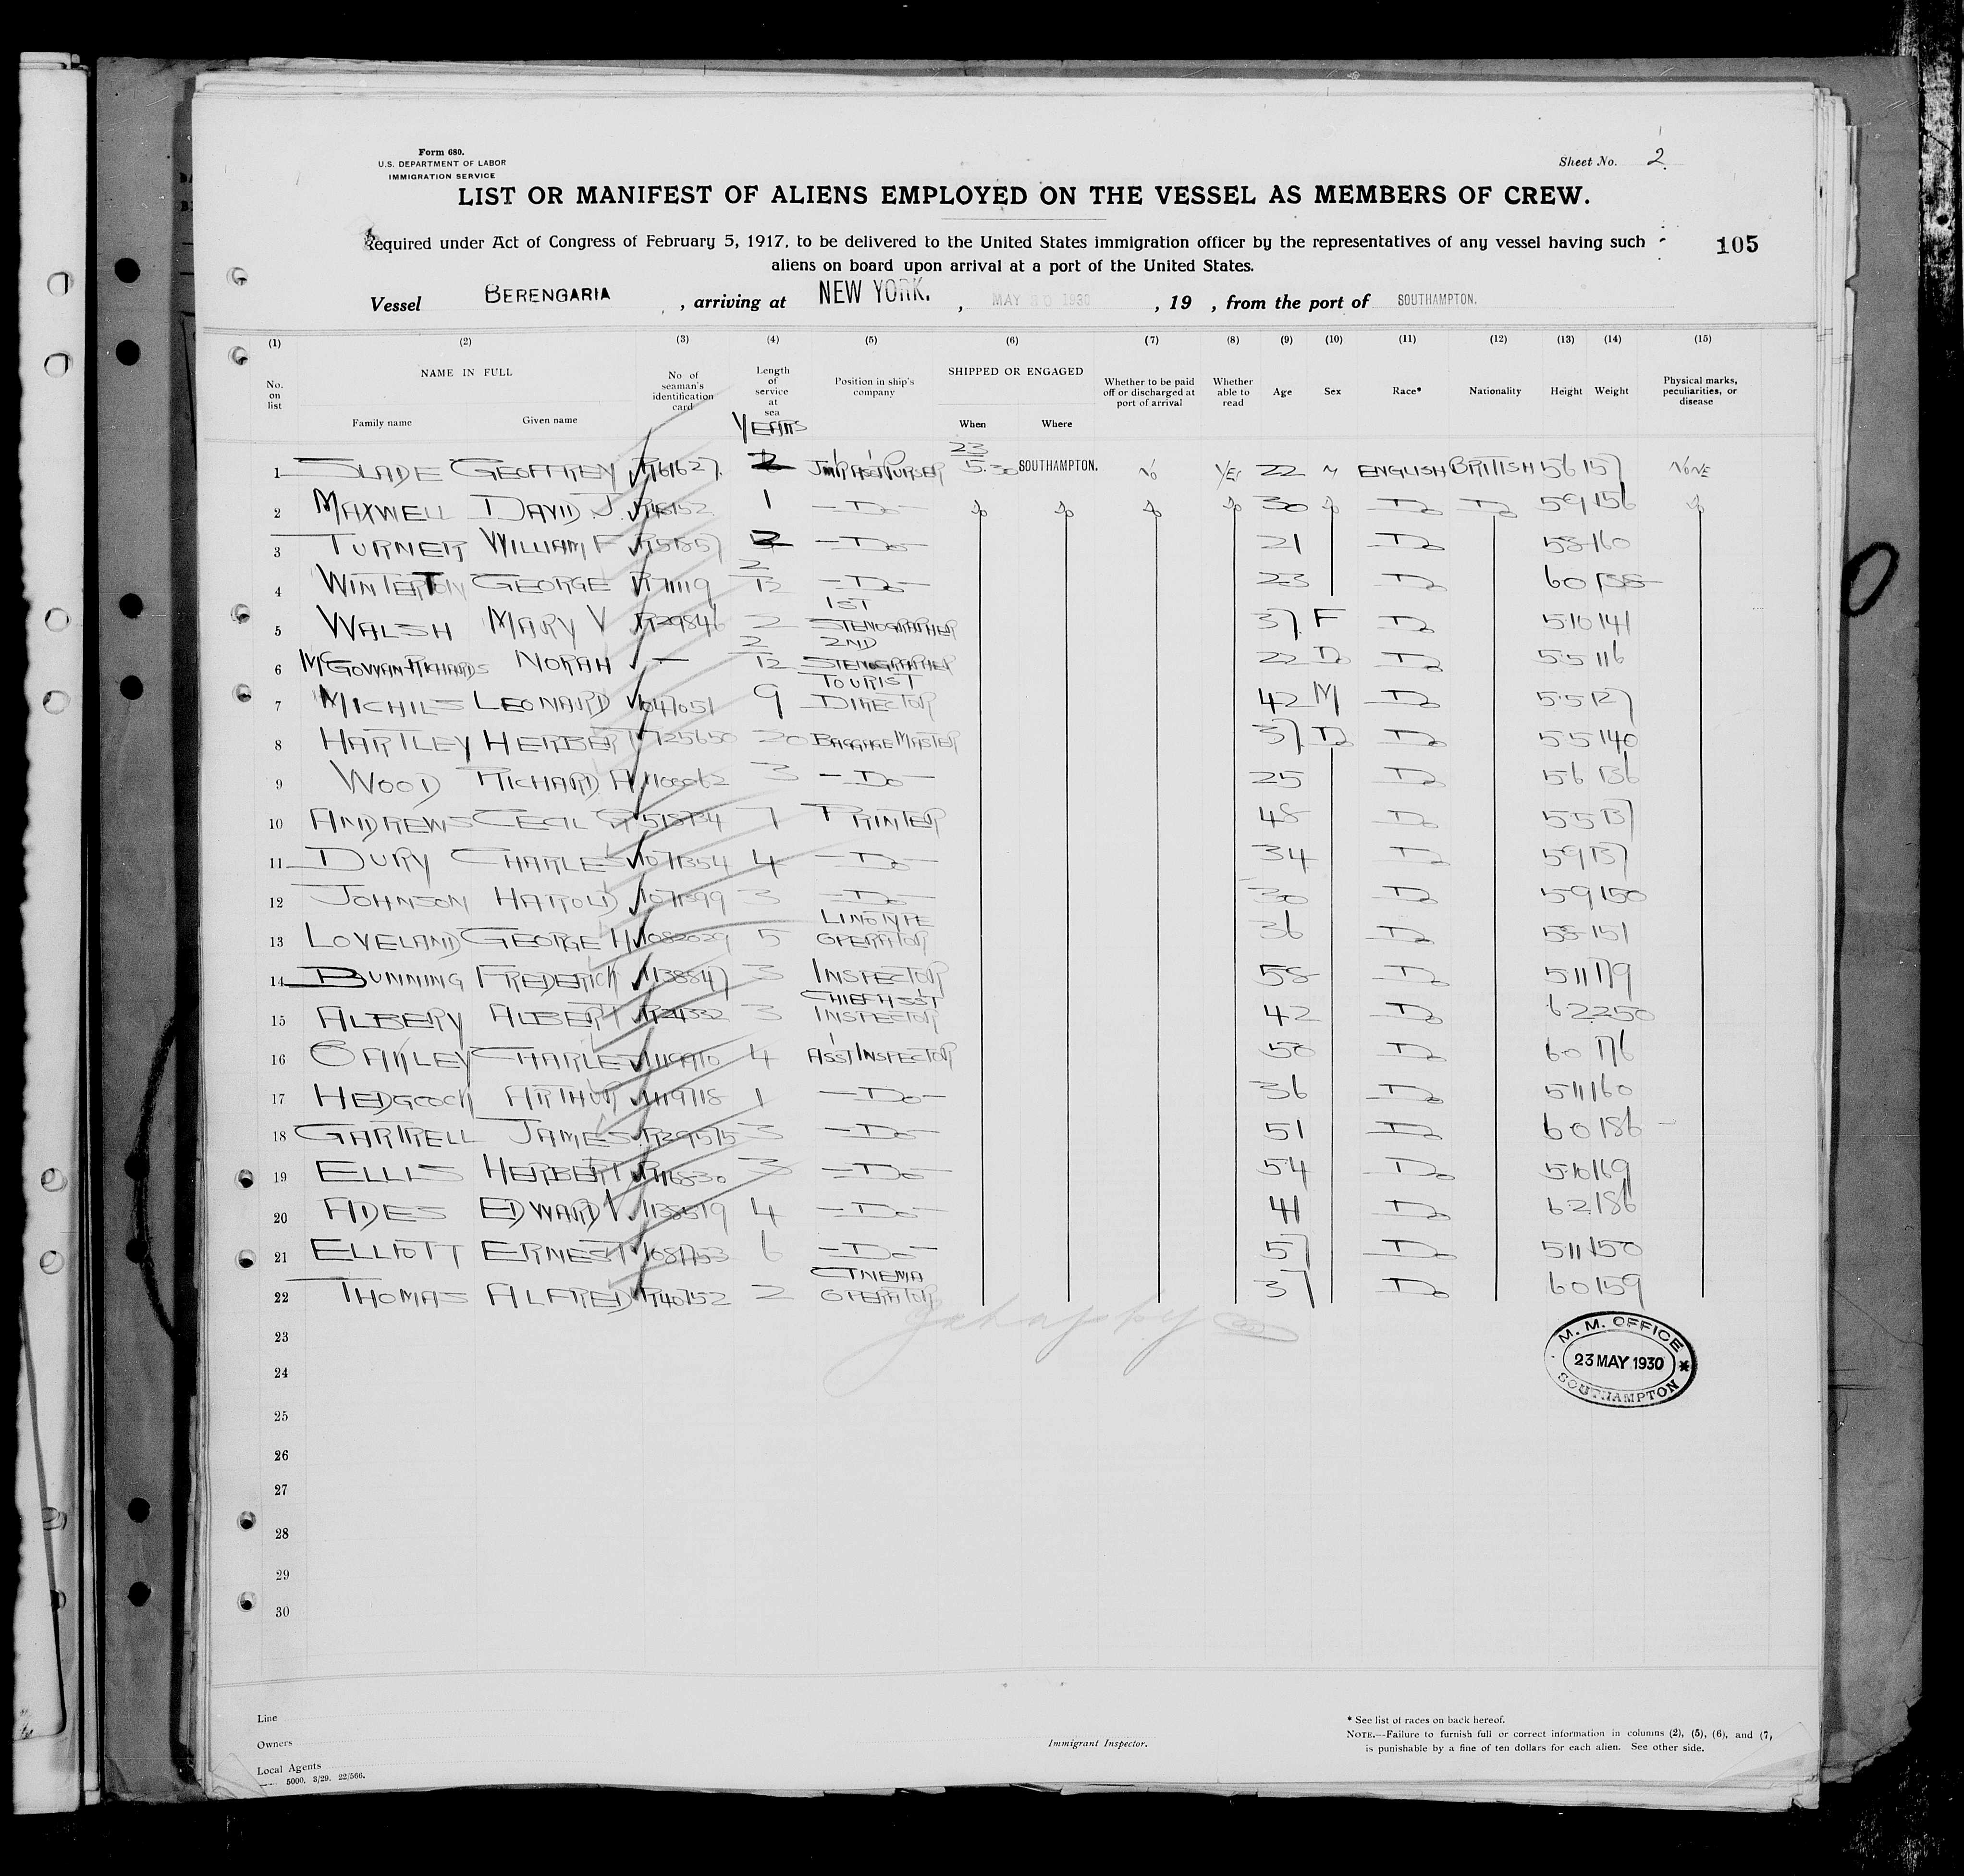 Form 680.
U.S. DEPARTMENT OF LABOR
IMMIGRATION SERVICE
Sheet No. 2.
LIST OR MANIFEST OF ALIENS EMPLOYED ON THE VESSEL AS MEMBERS OF CREW.
Required under Act of Congress of February 5, 1917, to be delivered to the United States immigration officer by the representatives of any vessel having such
aliens on board upon arrival at a port of the United States.
105
Vessel BERENGARIA, arriving at NEW YORK., MAY 30 1930, 19 , from the port of SOUTHAMPTON.
(1) (2) (3) (4) (5) (6) (7) (8) (9) (10) (11) (12) (13) (14) (15)
No. on list NAME IN FULL Family name Given name No of seaman's identification card Length of service at sea YEARS Position in ship's company SHIPPED OR ENGAGED When Where Whether to be paid off or discharged at port of arrival Whether able to read Age Sex Race* Nationality Height Weight Physical marks, peculiarities, or disease
1 SLADE GEOFFREY R161627 JNR ASST PURSER 23 5.30 SOUTHAMPTON. NO YES 22 M ENGLISH BRITISH 56 157 NONE
2 MAXWELL DAVID J. 1 - Do - Do Do Do Do 30 Do Do Do 59 156 Do
3 TURNER WILLIAM F - Do - 21 Do 58 160
4 WINTERTON GEORGE R71119 2/12 - Do - 23 Do 60 138
5 WALSH MARY V R29846 2 1ST STENOGRAPHER 37 F Do 5·10 141
6 McGOWAN-RICHARDS NORAH — 2/12 2ND STENOGRAPHER 22 Do Do 5·5 116
7 MICHILS LEONARD 1047051 9 TOURIST DIRECTOR 42 M Do 5·5 127
8 HARTLEY HERBERT 725650 20 BAGGAGE MASTER 37 Do Do 55 140
9 WOOD RICHARD A. 1100062 3 - Do - 25 Do 56 136
10 ANDREWS CECIL 7 PRINTER 48 Do 55 137
11 DURY CHARLES 1071354 4 - Do - 34 Do 59 137
12 JOHNSON HAROLD 3 - Do - 30 Do 59 150
13 LOVELAND GEORGE H 1082029 5 LINOTYPE OPERATOR 36 Do 58 151
14 BUNNING FREDERICK 1138847 3 INSPECTOR 58 Do 511 179
15 ALBERY ALBERT R24332 3 CHIEF ASST INSPECTOR 42 Do 62 250
16 OAKLEY CHARLES 1119910 4 ASST INSPECTOR 50 Do 60 176
17 HEDGCOCK ARTHUR 1119718 1 - Do - 36 Do 511 160
18 GARTRELL JAMES R29515 3 - Do - 51 Do 60 186
19 ELLIS HERBERT 3 - Do - 54 Do 5·10 169
20 ADES EDWARD V. 1138519 4 - Do - 41 Do 6·2 186
21 ELLIOTT ERNEST 1081753 6 - Do - 57 Do 511 150
22 THOMAS ALFRED R140152 2 CINEMA OPERATOR 37 Do 60 159
23
24
25
26
27
28
29
30
M. M. OFFICE
23 MAY 1930
SOUTHAMPTON
Line
Owners
Local Agents
5000. 3/29. 22/566.
Immigrant Inspector.
* See list of races on back hereof.
NOTE.—Failure to furnish full or correct information in columns (2), (5), (6), and (7)
is punishable by a fine of ten dollars for each alien. See other side.